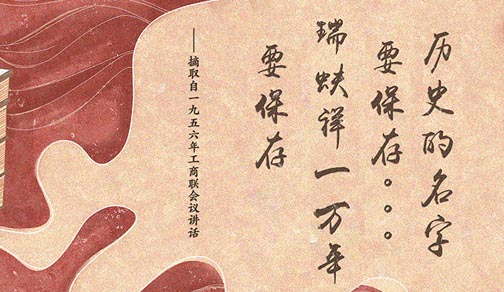 历史的名字
要保存。。。
瑞蚨祥一万年
要保存
——摘取自一九五六年工商联会议讲话